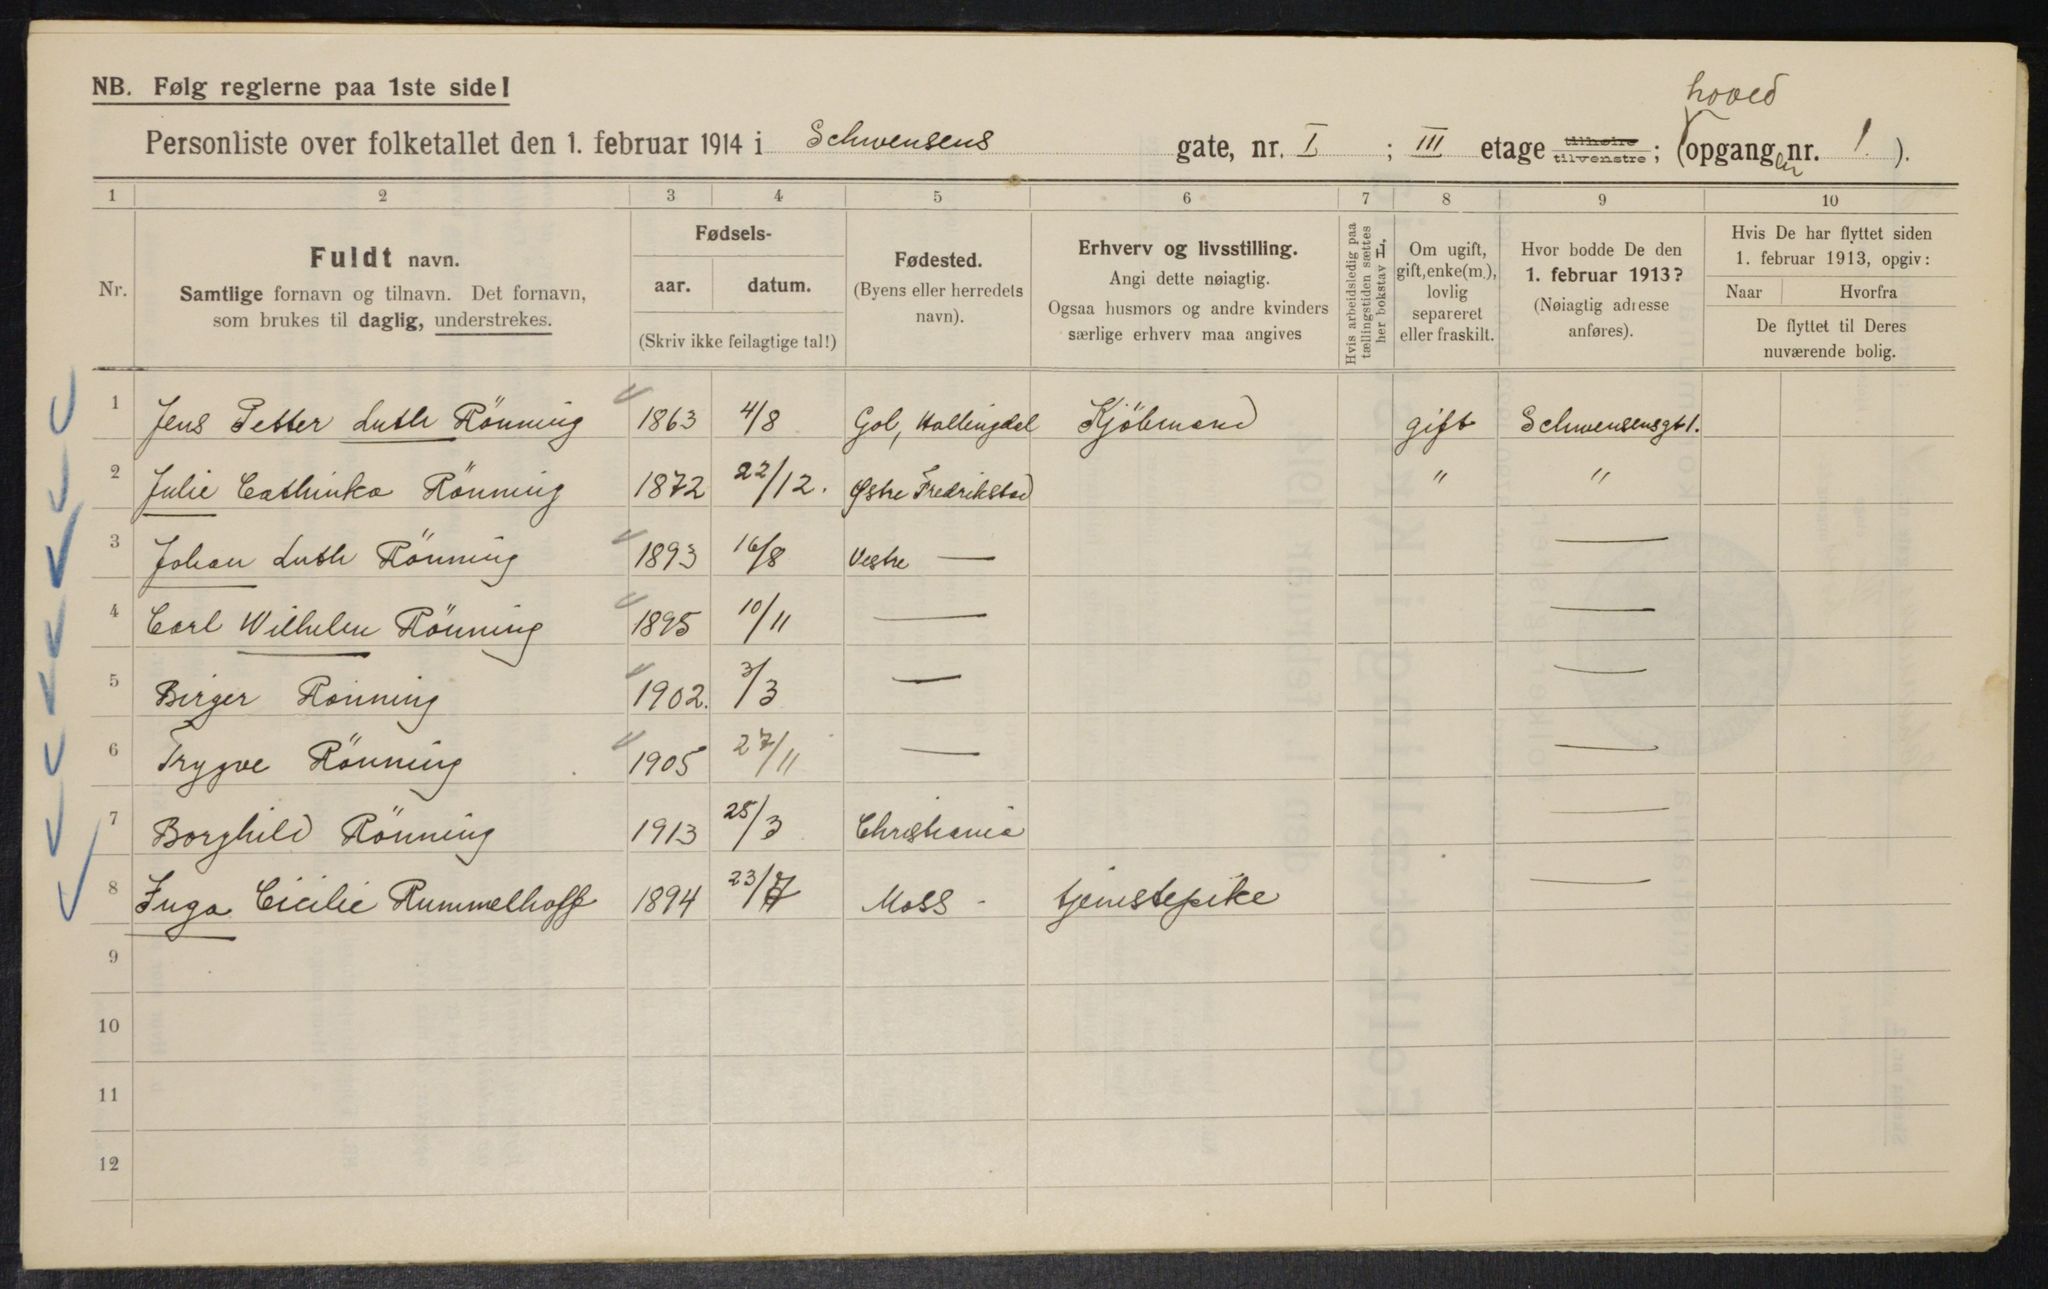 NB. Følg reglerne paa 1ste side!
hoved
Personliste over folketallet den 1. februar 1914 i Schwensens gate, nr. I ; III etage tilhøire tilvenstre ; (opgangen nr. 1. ).
1 2 3 4 5 6 7 8 9 10
Nr.
Fuldt navn.
Samtlige fornavn og tilnavn. Det fornavn,
som brukes til daglig, understrekes.
Fødsels-
aar. datum.
(Skriv ikke feilagtige tal!)
Fødested.
(Byens eller herredets
navn).
Erhverv og livsstilling.
Angi dette nøiagtig.
Ogsaa husmors og andre kvinders
særlige erhverv maa angives
Hvis arbeidsledig paa
tællingstiden sættes
her bokstav L.
Om ugift,
gift, enke(m.),
lovlig
separeret
eller fraskilt.
Hvor bodde De den
1. februar 1913?
(Nøiagtig adresse
anføres).
Hvis De har flyttet siden
1. februar 1913, opgiv:
Naar Hvorfra
De flyttet til Deres
nuværende bolig.
1 Jens Petter Luth Rönning 1863 4/8 Gol, Hallingdal Kjöbmand gift Schwensensgt 1.
2 Julie Cathinka Rönning 1872 22/12. Østre Fredrikstad " "
3 Johan Luth Rönning 1893 16/8 Vestre — —
4 Carl Wilhelm Rönning 1895 10/11 — —
5 Birger Rönning 1902. 3/3 — —
6 Trygve Rönning 1905 27/11 — —
7 Borghild Rönning 1913 25/3 Christiania —
8 Inga Cicilie Rummelhoff 1894 23/7 Moss - tjenstepike —
9
10
11
12